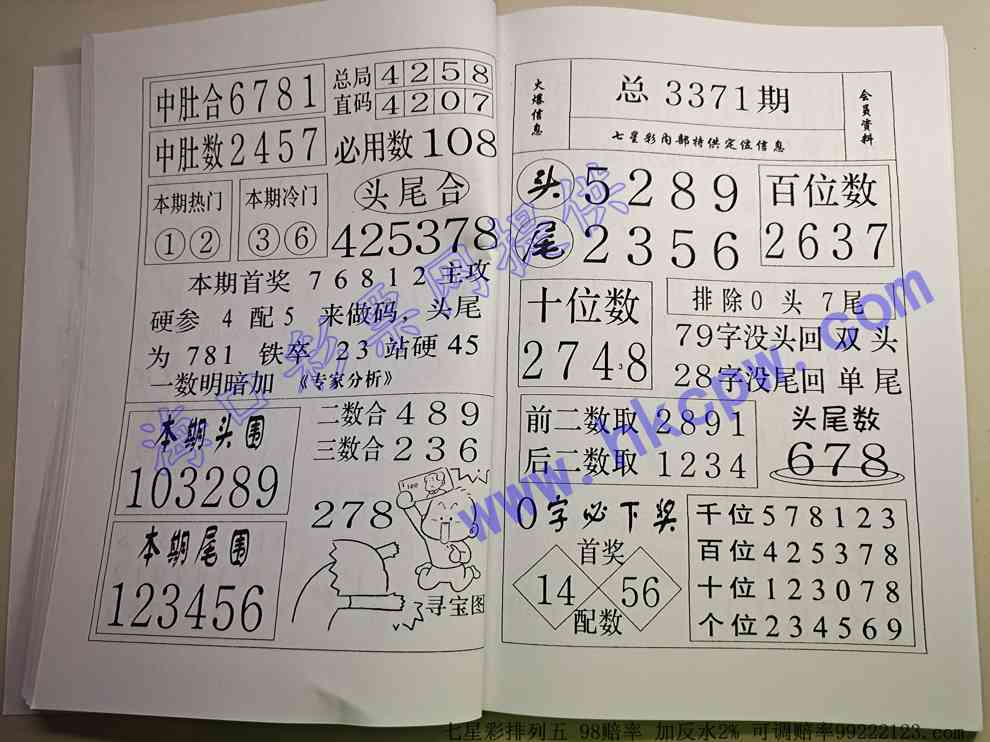 中肚合6781
总局4258
直码4207
中肚数2457
必用数108
本期热门
①②
本期冷门
③⑥
头尾合
425378
本期首奖 76812 主攻
硬参 4 配5 来做码，头尾
为 781 铁卒 23 站硬 45
一数明暗加 《专家分析》
本期头围
103289
二数合 489
三数合 236
278
本期尾围
123456
寻宝图
火爆信息
总 3371期
七星彩内部特供定位信息
会员资料
头 5289
尾 2356
百位数
2637
十位数
2748
排除0 头 7尾
79字没头回 双 头
28字没尾回 单 尾
前二数取 2891
后二数取 1234
头尾数
678
0字必下奖
首奖
14 56
配数
千位 578123
百位 425378
十位 123078
个位 234569
海口彩票网提供
www.hkcpw.com
七星彩排列五 98赔率 加反水2% 可调赔率99222123.com